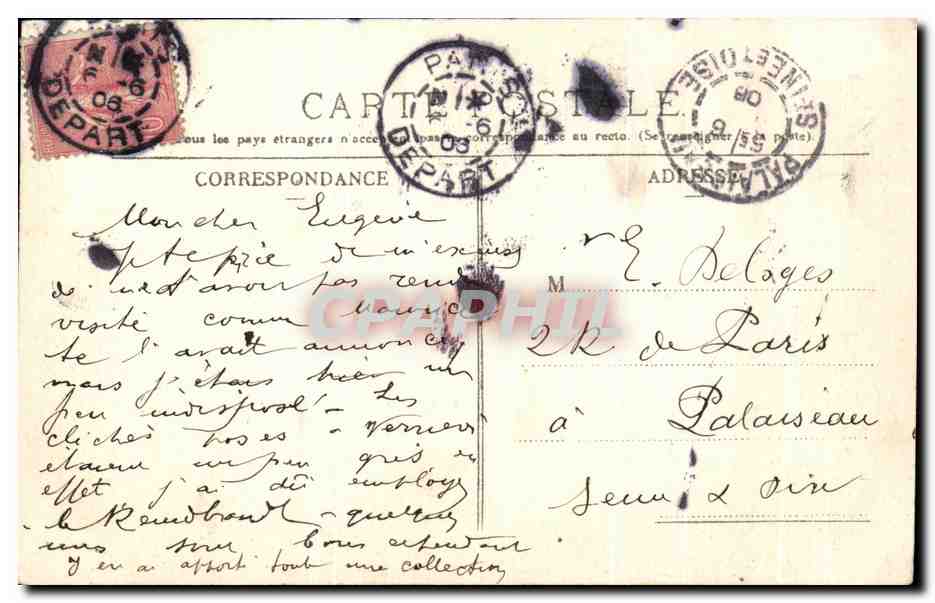 CARTE POSTALE
Tous les pays étrangers n'acceptent pas la correspondance au recto. (Se renseigner à la poste).
CORRESPONDANCE
ADRESSE
DEPART
06
PARIS
6
06
DEPART
PALAISEAU
SEINE ET OISE
6
06
Mon cher Eugène
je te prie de m'excuser
de ne t'avoir pas rendu
visite comme Maurice
te l'avait annoncé
mais j'étais hier un
peu indisposé - Les
clichés posés - Verrières
étaient un peu gris en
effet j'ai dû employer
le Rembrandt - quelques
uns sont bons cependant
j'en ai apporté toute une collection
M r E. Delages
2k de Paris
à Palaiseau
Seine & Oise
CPAPHIL